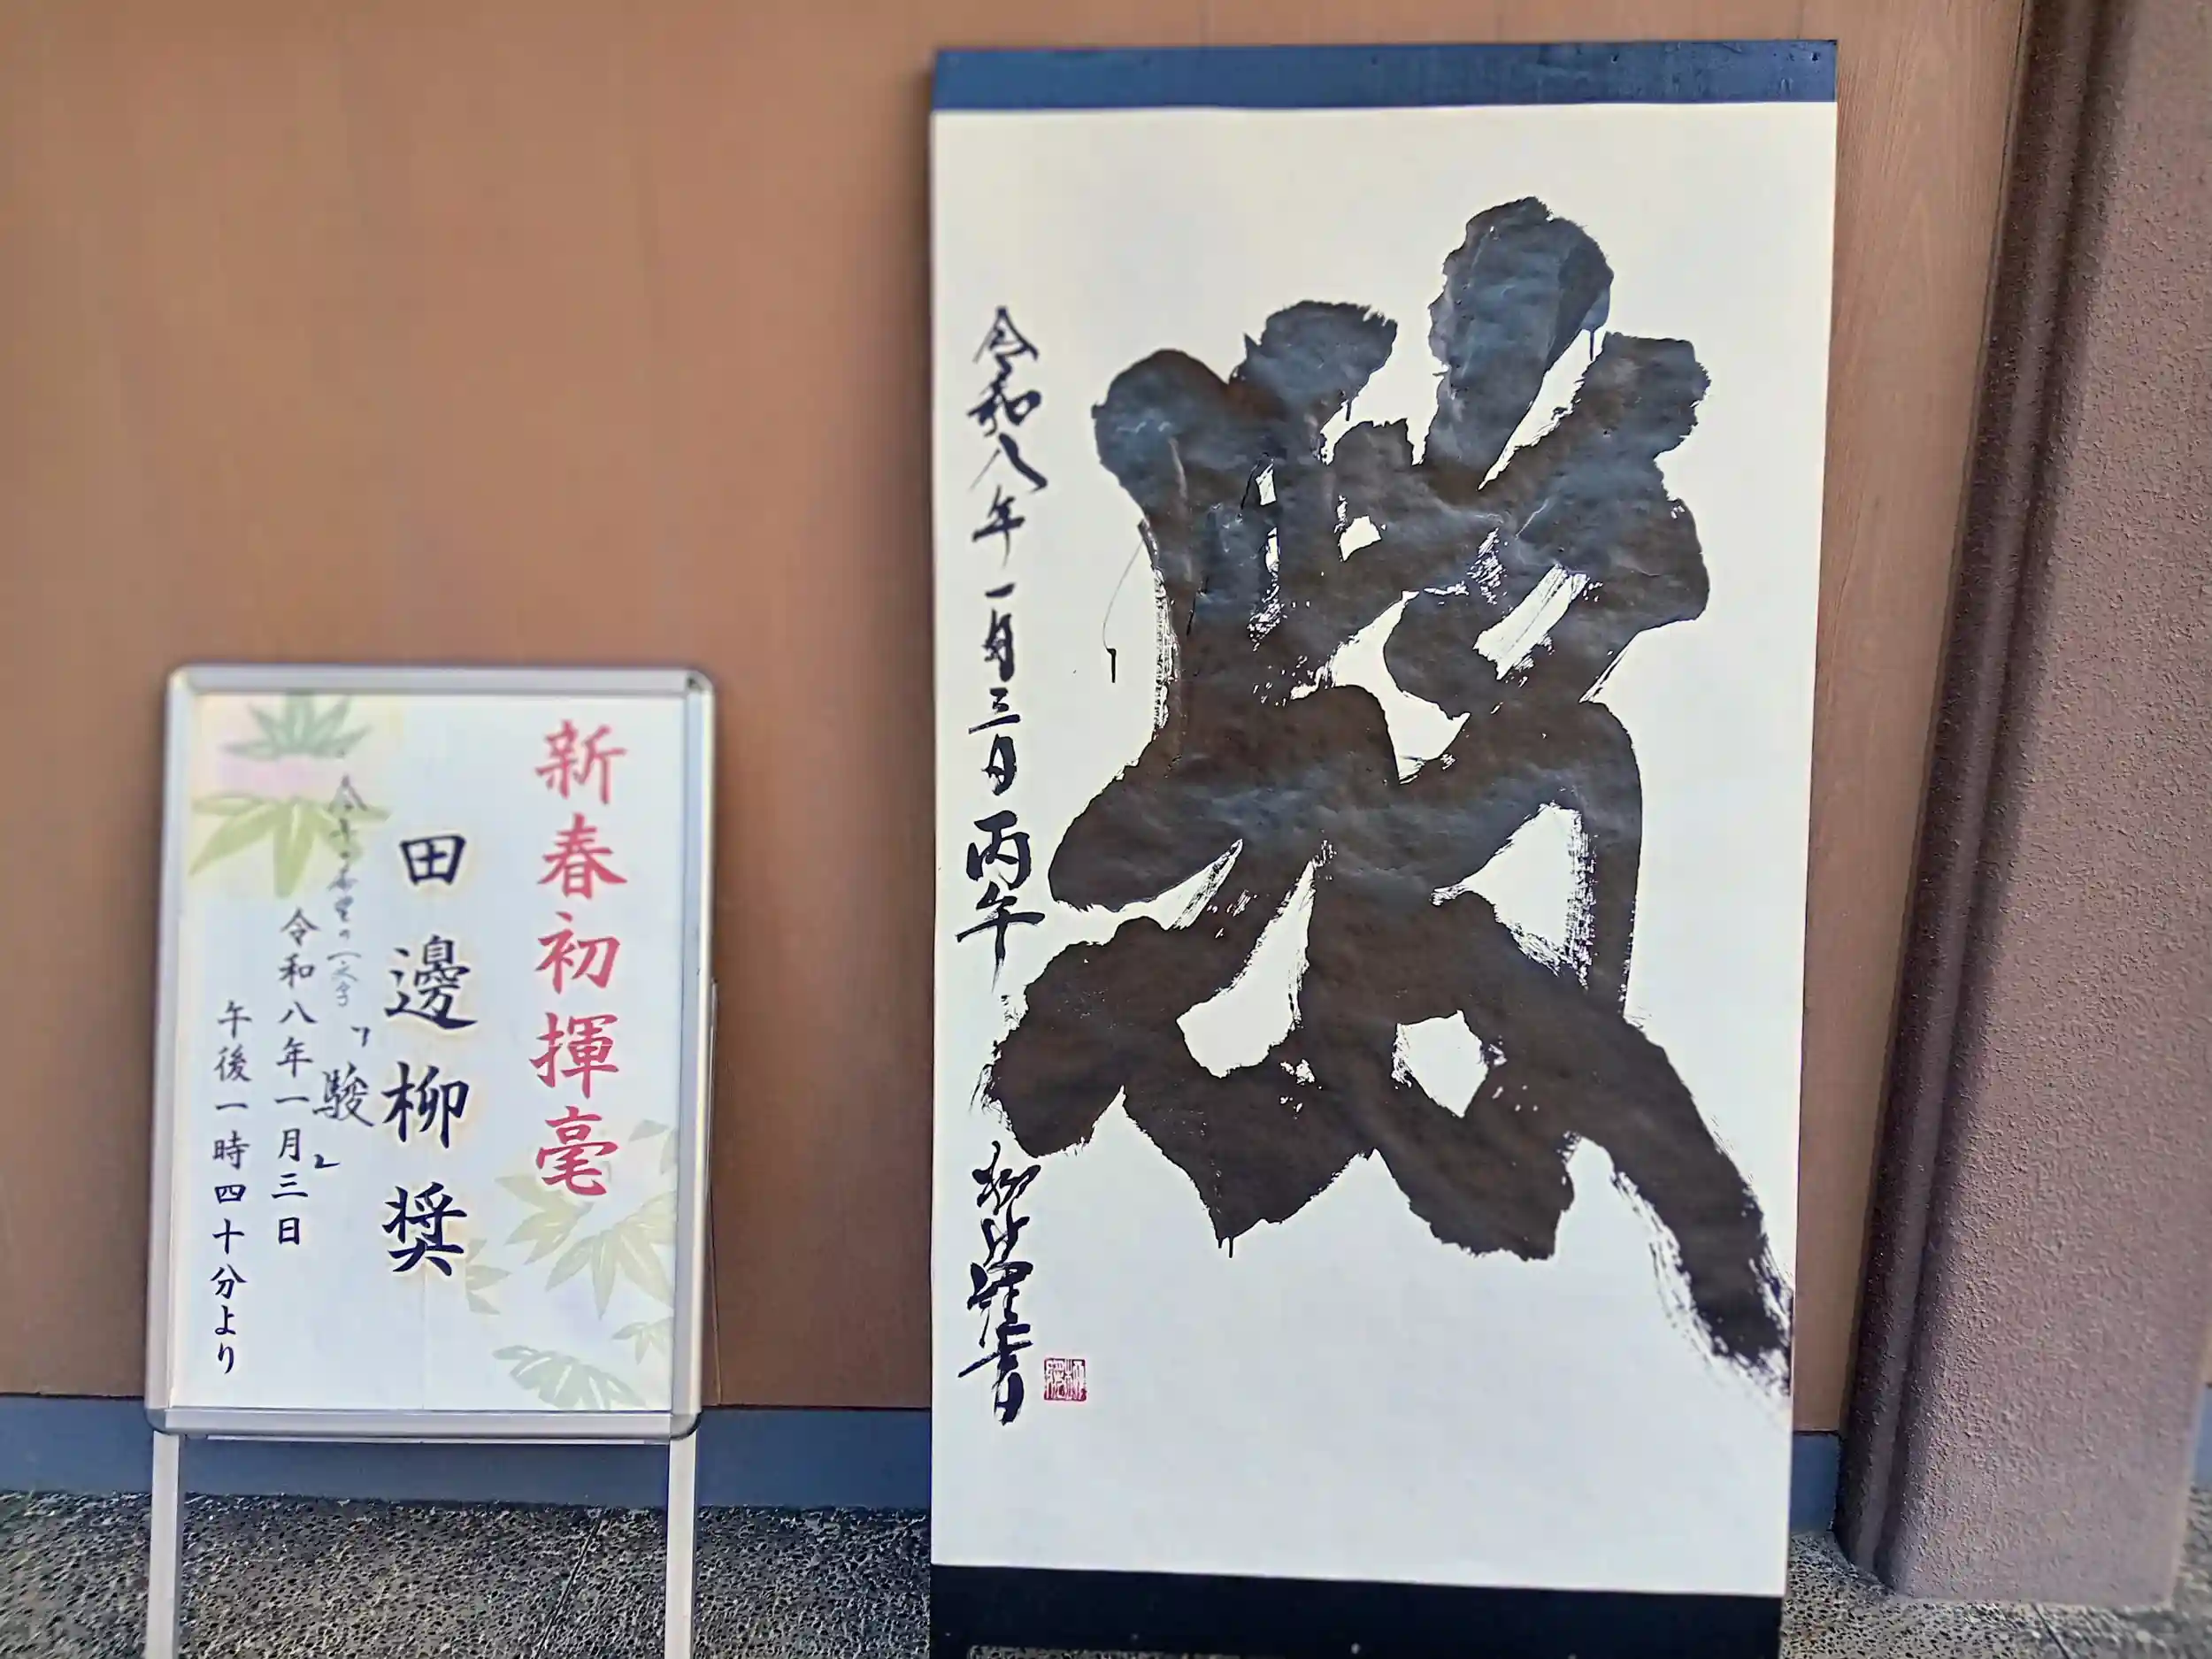 新春初揮毫
田邊柳奨
今年の希望の一文字
「駿」
令和八年一月三日
午後一時四十分より
駿
令和八年一月三日 丙午